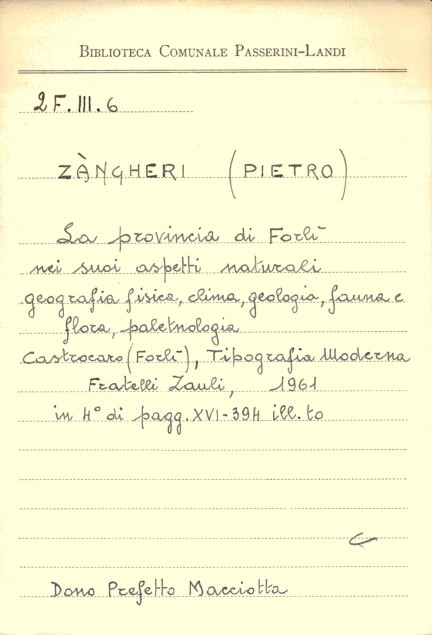 BIBLIOTECA COMUNALE PASSERINI-LANDI
2 F. III. 6
ZÀNGHERI (PIETRO)
La provincia di Forlì
nei suoi aspetti naturali
geografia fisica, clima, geologia, fauna e
flora, paletnologia
Castrocaro (Forlì), Tipografia Moderna
Fratelli Zauli, 1961
in 4° di pagg. XVI-394 ill. to
Dono Prefetto Macciotta